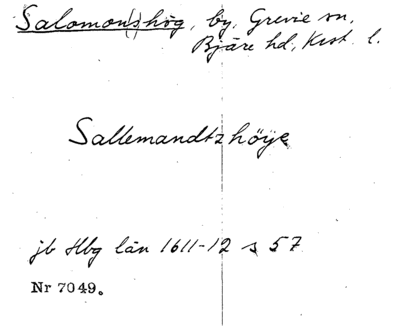 Salomon(s)hög, by, Grevie sn,
Bjäre hd, Krist. l.
Sallemandtz höye
jb Hbg län 1611-12 s 57
Nr 7049.